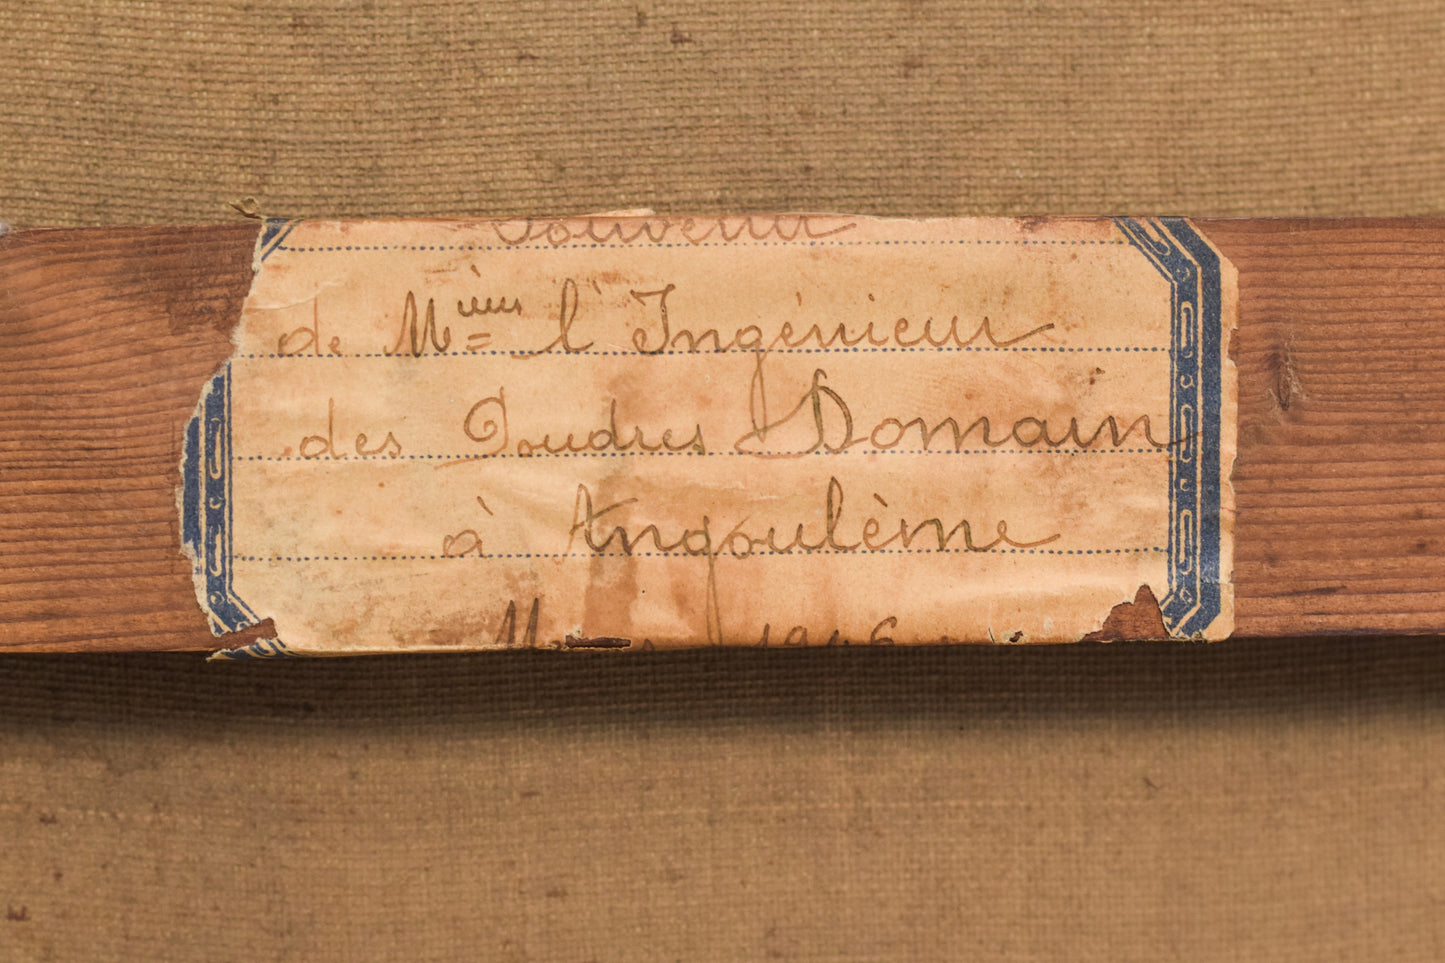 Souvenir
de M l'Ingénieur
des Poudres Domain
à Angoulême
Mars 1946